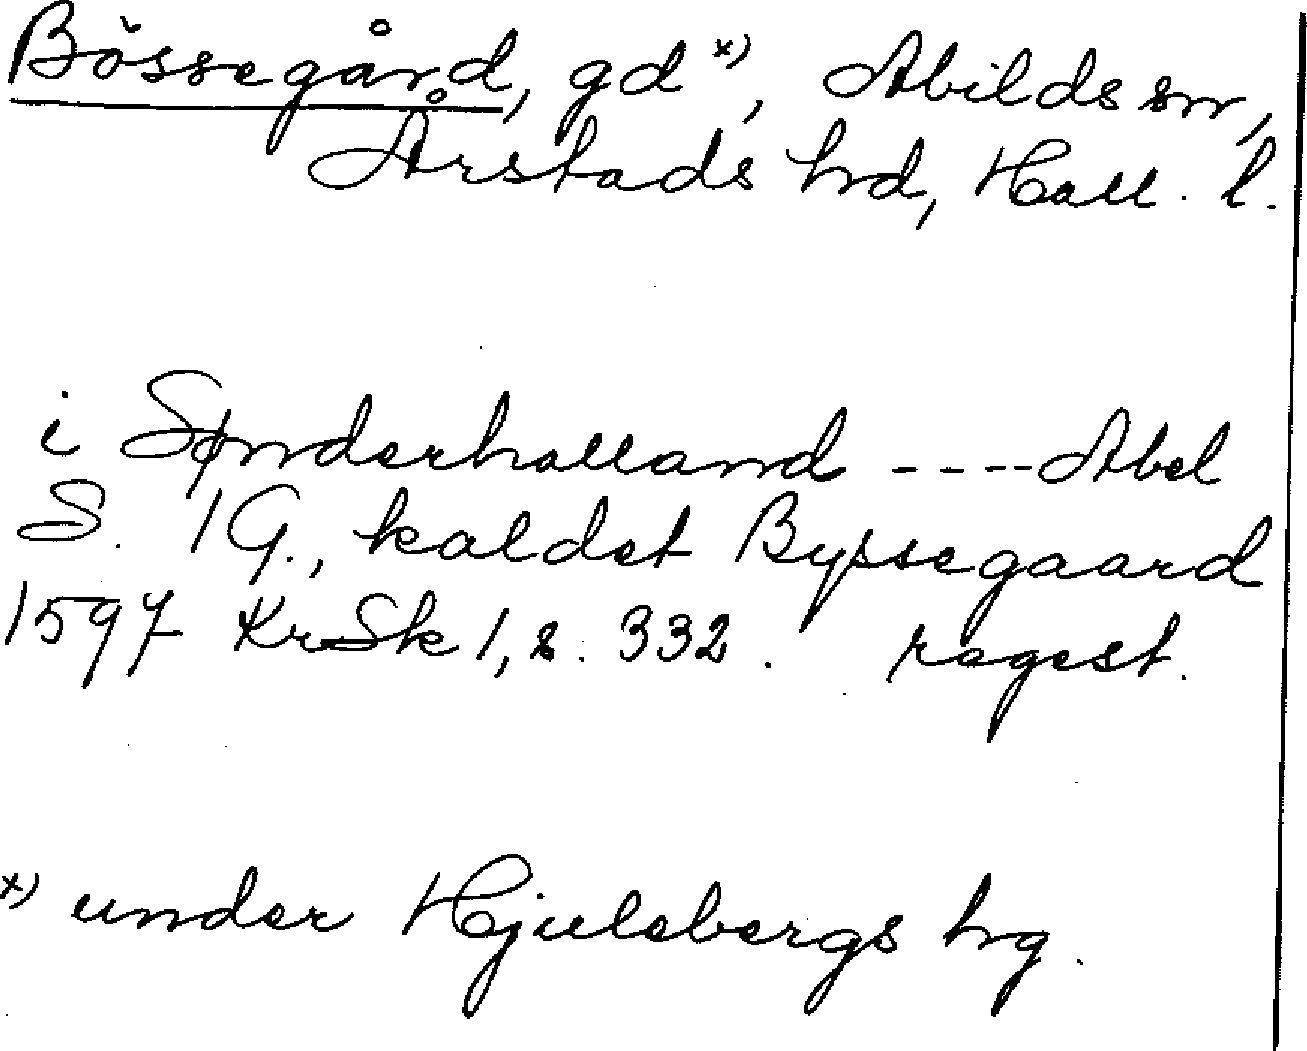 Bössegård, gd x), Abilds sn,
Årstads hrd, Hall. l.
i Sønderhalland ---- Abel
S. 1 G., kaldet Byssegaard
1597 KrSk 1, s. 332. regest.
x) under Hjulebergs hrg.